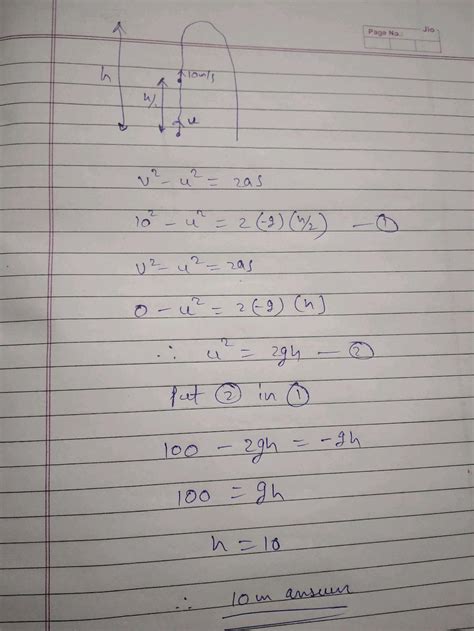 Page No.: Jio
h
10m/s
h/2
u
v² - u² = 2as
10² - u² = 2(-g)(h/2) — ①
v² - u² = 2as
0 - u² = 2(-g)(h)
∴ u² = 2gh — ②
put ② in ①
100 - 2gh = -gh
100 = gh
h = 10
∴ 10m answer